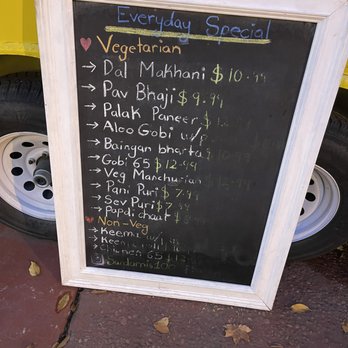 Everyday Special
Vegetarian
→ Dal Makhani $10.99
→ Pav Bhaji $9.99
→ Palak Paneer $
→ Aloo Gobi w/p
→ Baingan bharta
→ Gobi 65 $12.99
→ Veg Manchurian
→ Pani Puri $7.99
→ Sev Puri $7.99
→ Papdi chaat $
Non-Veg
→ Keema
→ Keema
→ Chicken 65